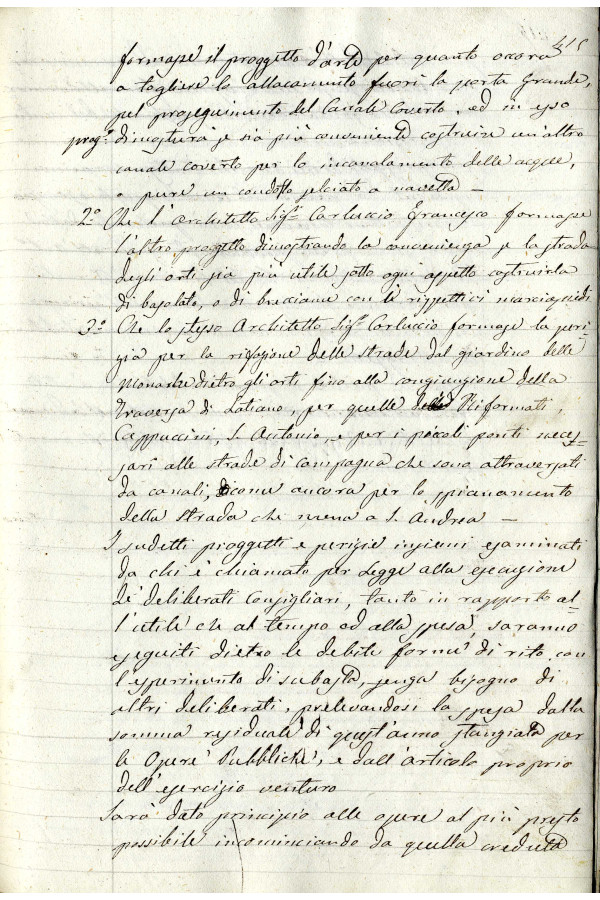 415
formasse il proggetto d'arte per quanto occorra
a togliere lo allacamento fuori la porta Grande,
pel proseguimento del Canale Coverto, ed in esso
prog.º dimostrarà se sia più conveniente costruire un'altro
canale coverto per lo incanalamento delle acque,
o pure un condotto selciato a navetta —
2º Che l'Architetto Sigʳ Carluccio Francesco formasse
l'altro progetto dimostrando la convenienza se la strada
degli orti sia più utile sotto ogni aspetto costruirla
di basolato, o di brecciame con li rispettici marciapiedi
3º Che lo stesso Architetto Sigʳ Carluccio formasse la peri-
zia per la rifazione delle strade dal giardino delle
Monache dietro gli orti fino alla congiunzione della
traversa di Latiano, per quelle de' Riformati,
Cappuccini, S. Antonio, e per i piccoli ponti neces-
sarî alle strade di Campagna che sono attraversati
da canali, come ancora per lo spianamento
della strada che mena a S. Andrea —
I sudetti proggetti e perizie insiemi esaminati
da chi è chiamato per Legge alla esecuzione
de' deliberati Consigliari, tanto in rapporto al-
l'utile che al tempo ed alla spesa, saranno
eseguiti dietro le debite forme di rito con
l'esperimento di subasta, senza bisogno di
altri deliberati, prelevandosi la spesa dalla
somma residuale di quest'anno stanziata per
le Opere Pubbliche, e dall'articolo proprio
dell'esercizio venturo
Sarà dato principio alle opere al più presto
possibile incominciando da quella creduta